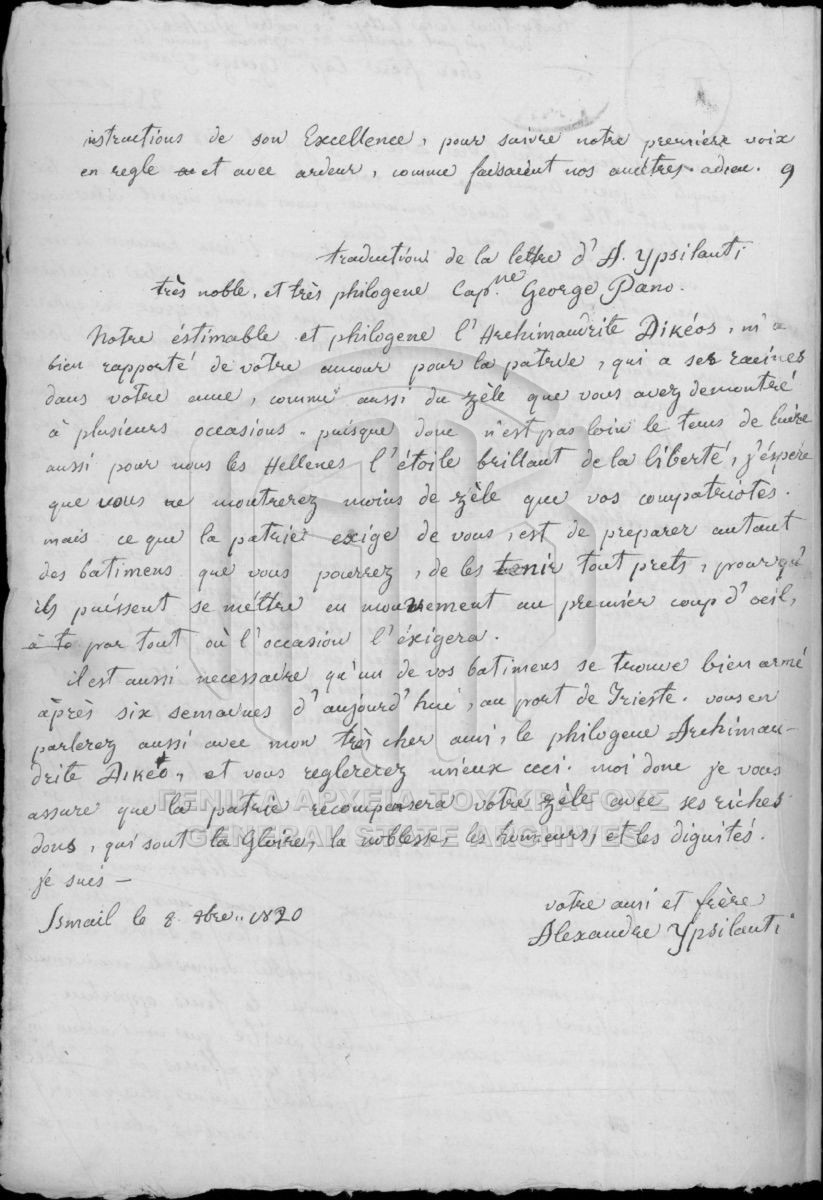 instructions de son Excellence, pour suivre notre premiere voix
en regle et avec ardeur, comme faisaient nos ancétres. adieu. 9
traduction de la lettre d'A. Ypsilanti
très noble, et très philogene Cap.ne George Pano.
Notre éstimable et philogene l'Archimandrite Dikéos, m'a
bien rapporté de votre amour pour la patrie, qui a ses racines
dans votre ame, comme aussi du zèle que vous avez demontré
à plusieurs occasions. puisque donc n'est pas loin le tems de luire
aussi pour nous les Hellenes l'étoile brillant de la liberté, j'éspére
que vous ne montrerez moins de zèle que vos compatriotes.
mais ce que la patrie exige de vous, est de preparer autant
des batimens que vous pourrez, de les tenir tout prets, pourqu'
ils puissent se méttre en mouvement au premier coup d'oeil,
à to par tout où l'occasion l'éxigera.
il est aussi necessaire qu'un de vos batimens se trouve bien armé
après six semaines d'aujourd'hui, au port de Trieste. vous en
parlerez aussi avec mon très cher ami, le philogene Archiman-
drite Dikéos, et vous reglererez mieux ceci. moi donc je vous
assure que la patrie recompensera votre zèle avec ses riches
dons, qui sont la Gloire, la noblesse, les honneurs, et les dignités.
je suis —
votre ami et frère
Ismail le 8. 8bre.. 1820
Alexandre Ypsilanti
ΓΕΝΙΚΑ ΑΡΧΕΙΑ ΤΟΥ ΚΡΑΤΟΥΣ
GENERAL STATE ARCHIVES